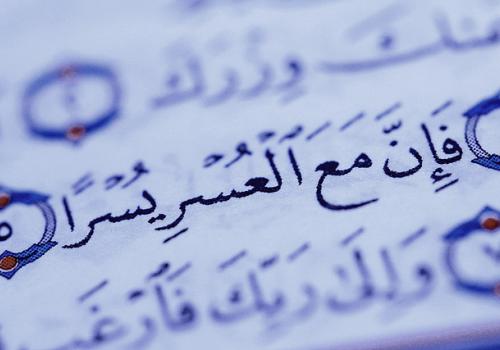 عنك وزرك
فَإِنَّ مَعَ ٱلْعُسْرِ يُسْرًا ٥
وَإِلَىٰ رَبِّكَ فَٱرْغَب